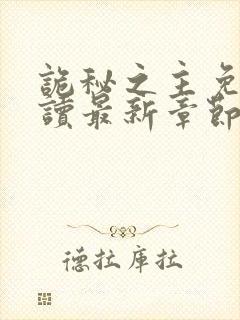 詭秘之主免
讀最新章節
德拉庫拉